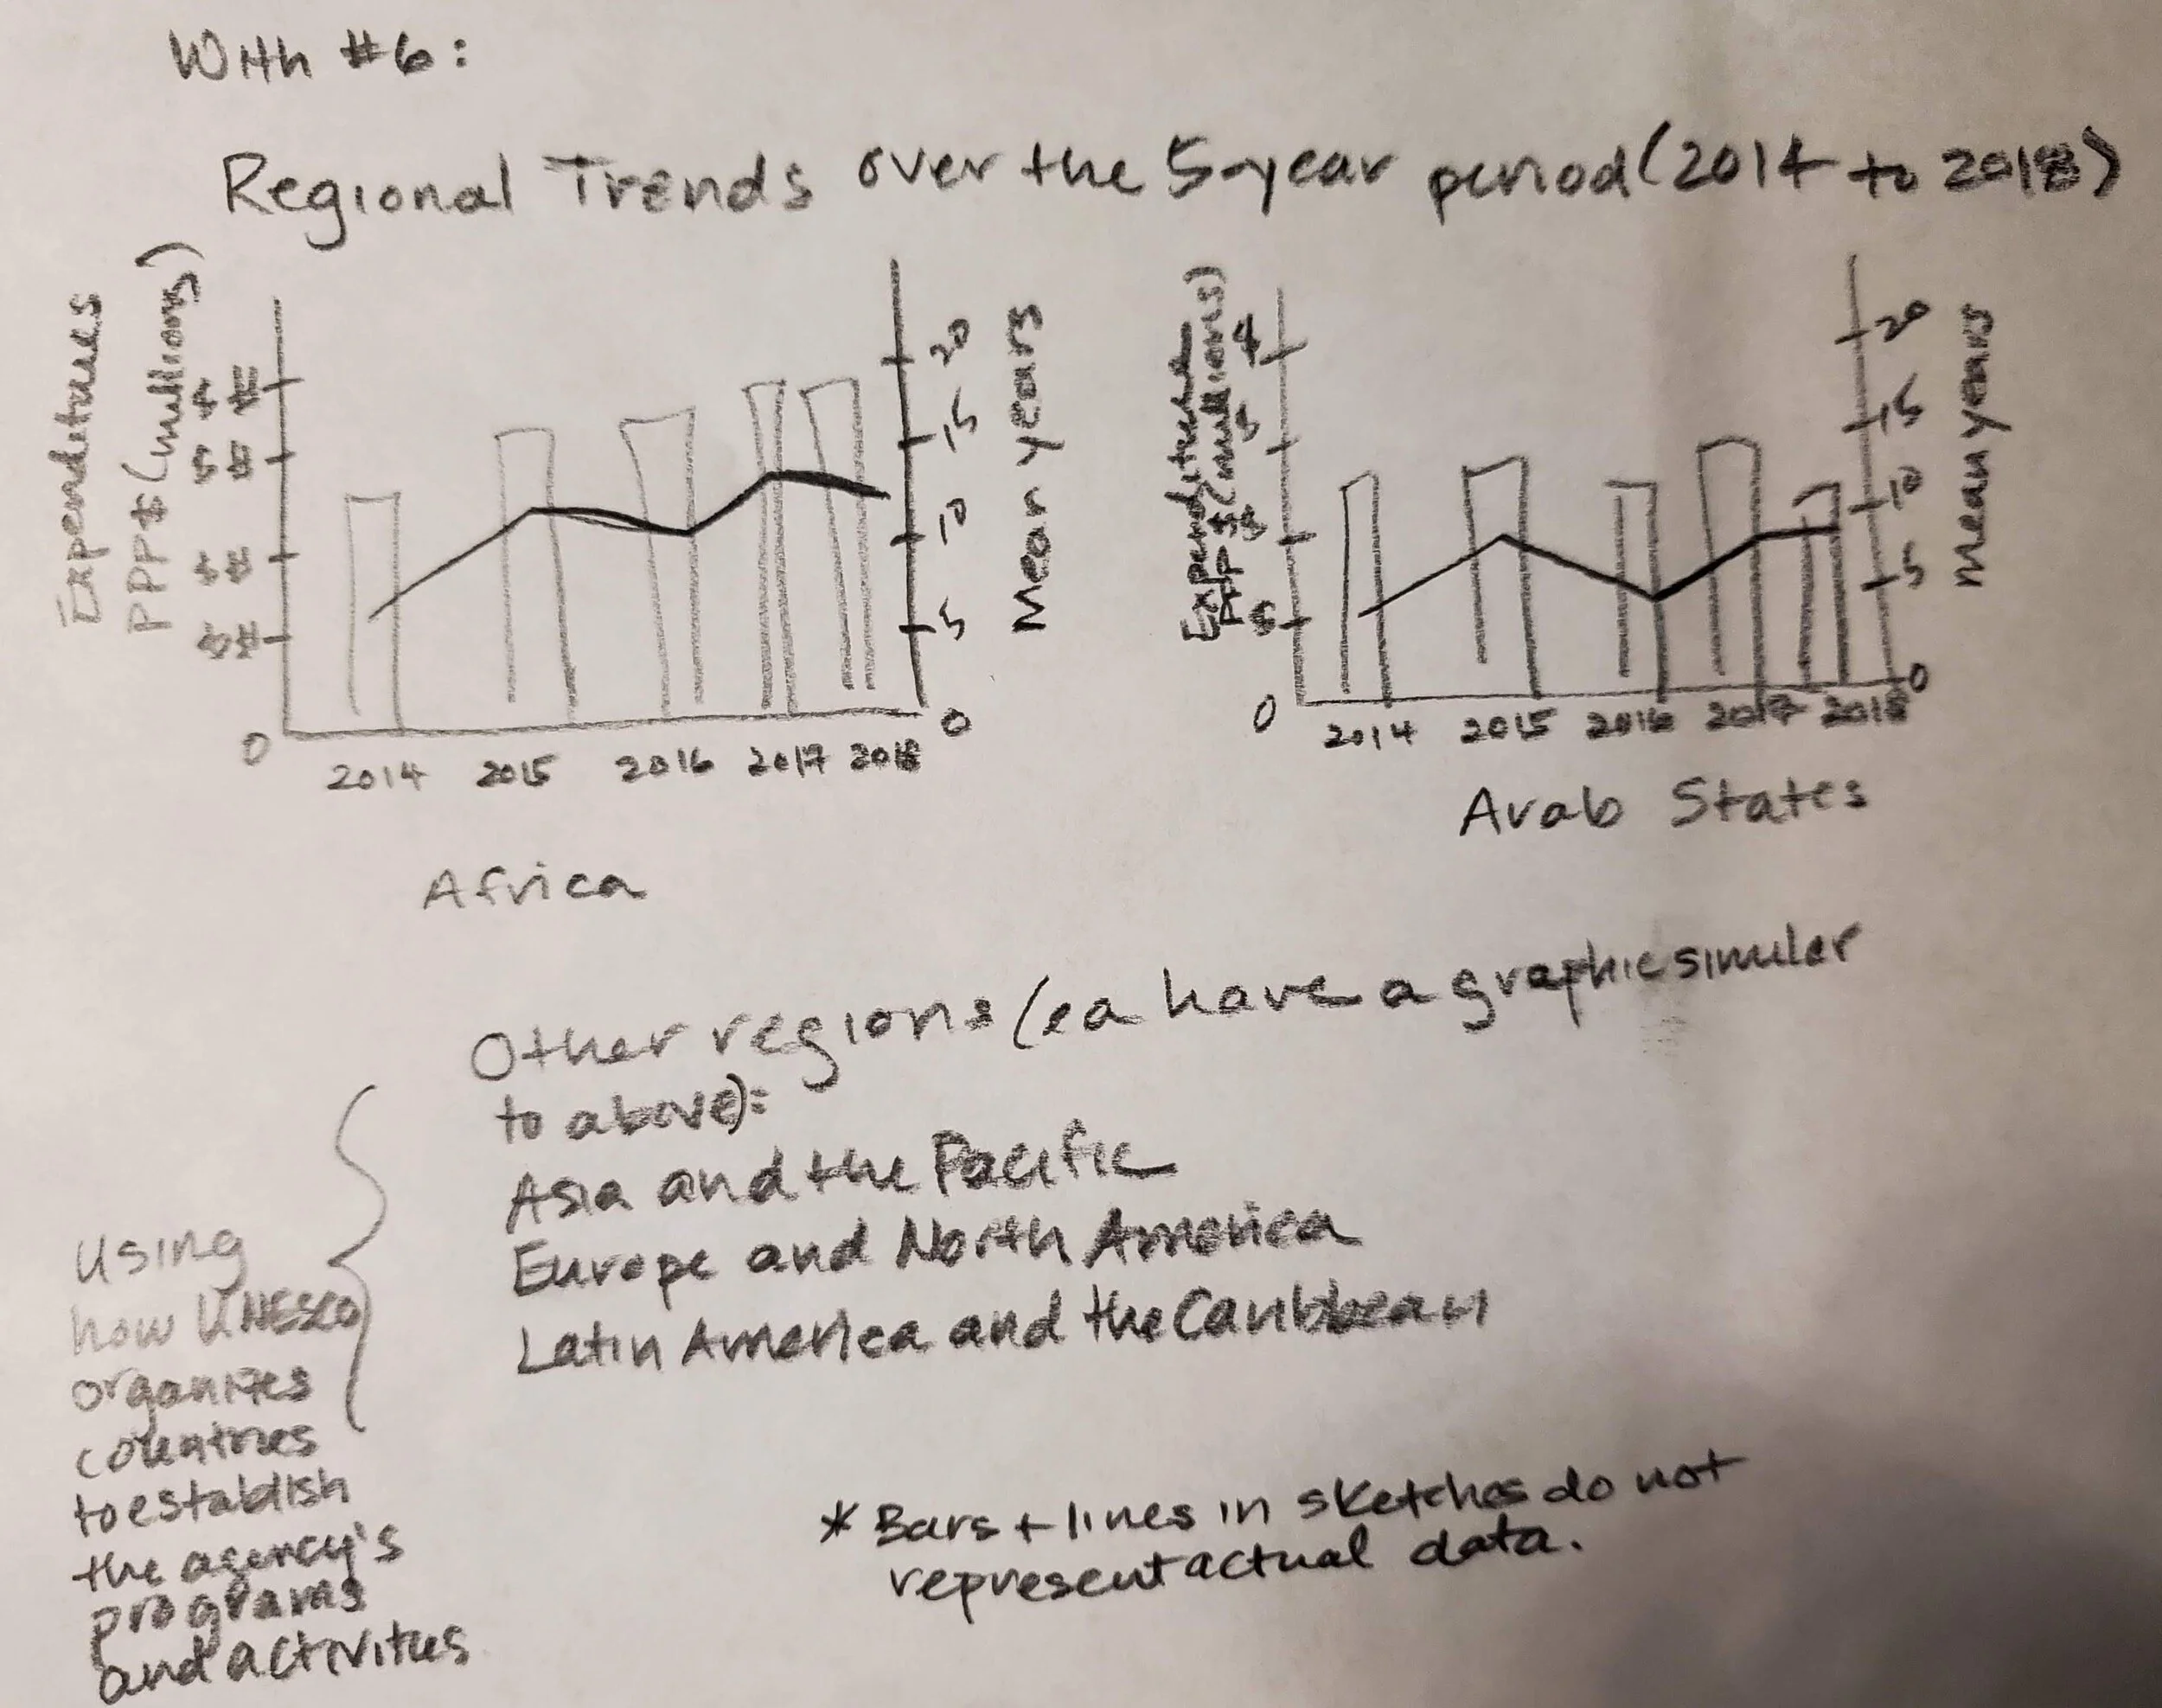 With #6:
Regional Trends over the 5-year period (2014 to 2018)
Expenditures
PPP$ (millions)
$ #
$ #
$ #
$ #
0
20
15
10
5
0
Mean years
2014 2015 2016 2017 2018
Africa
Expenditures
PPP $ (millions)
$
$
$
$
0
20
15
10
5
0
Mean years
2014 2015 2016 2017 2018
Arab States
Other regions (ea have a graphic similar
to above):
Asia and the Pacific
Europe and North America
Latin America and the Caribbean
Using
how UNESCO
organizes
countries
to establish
the agency's
programs
and activities
* Bars + lines in sketches do not
represent actual data.